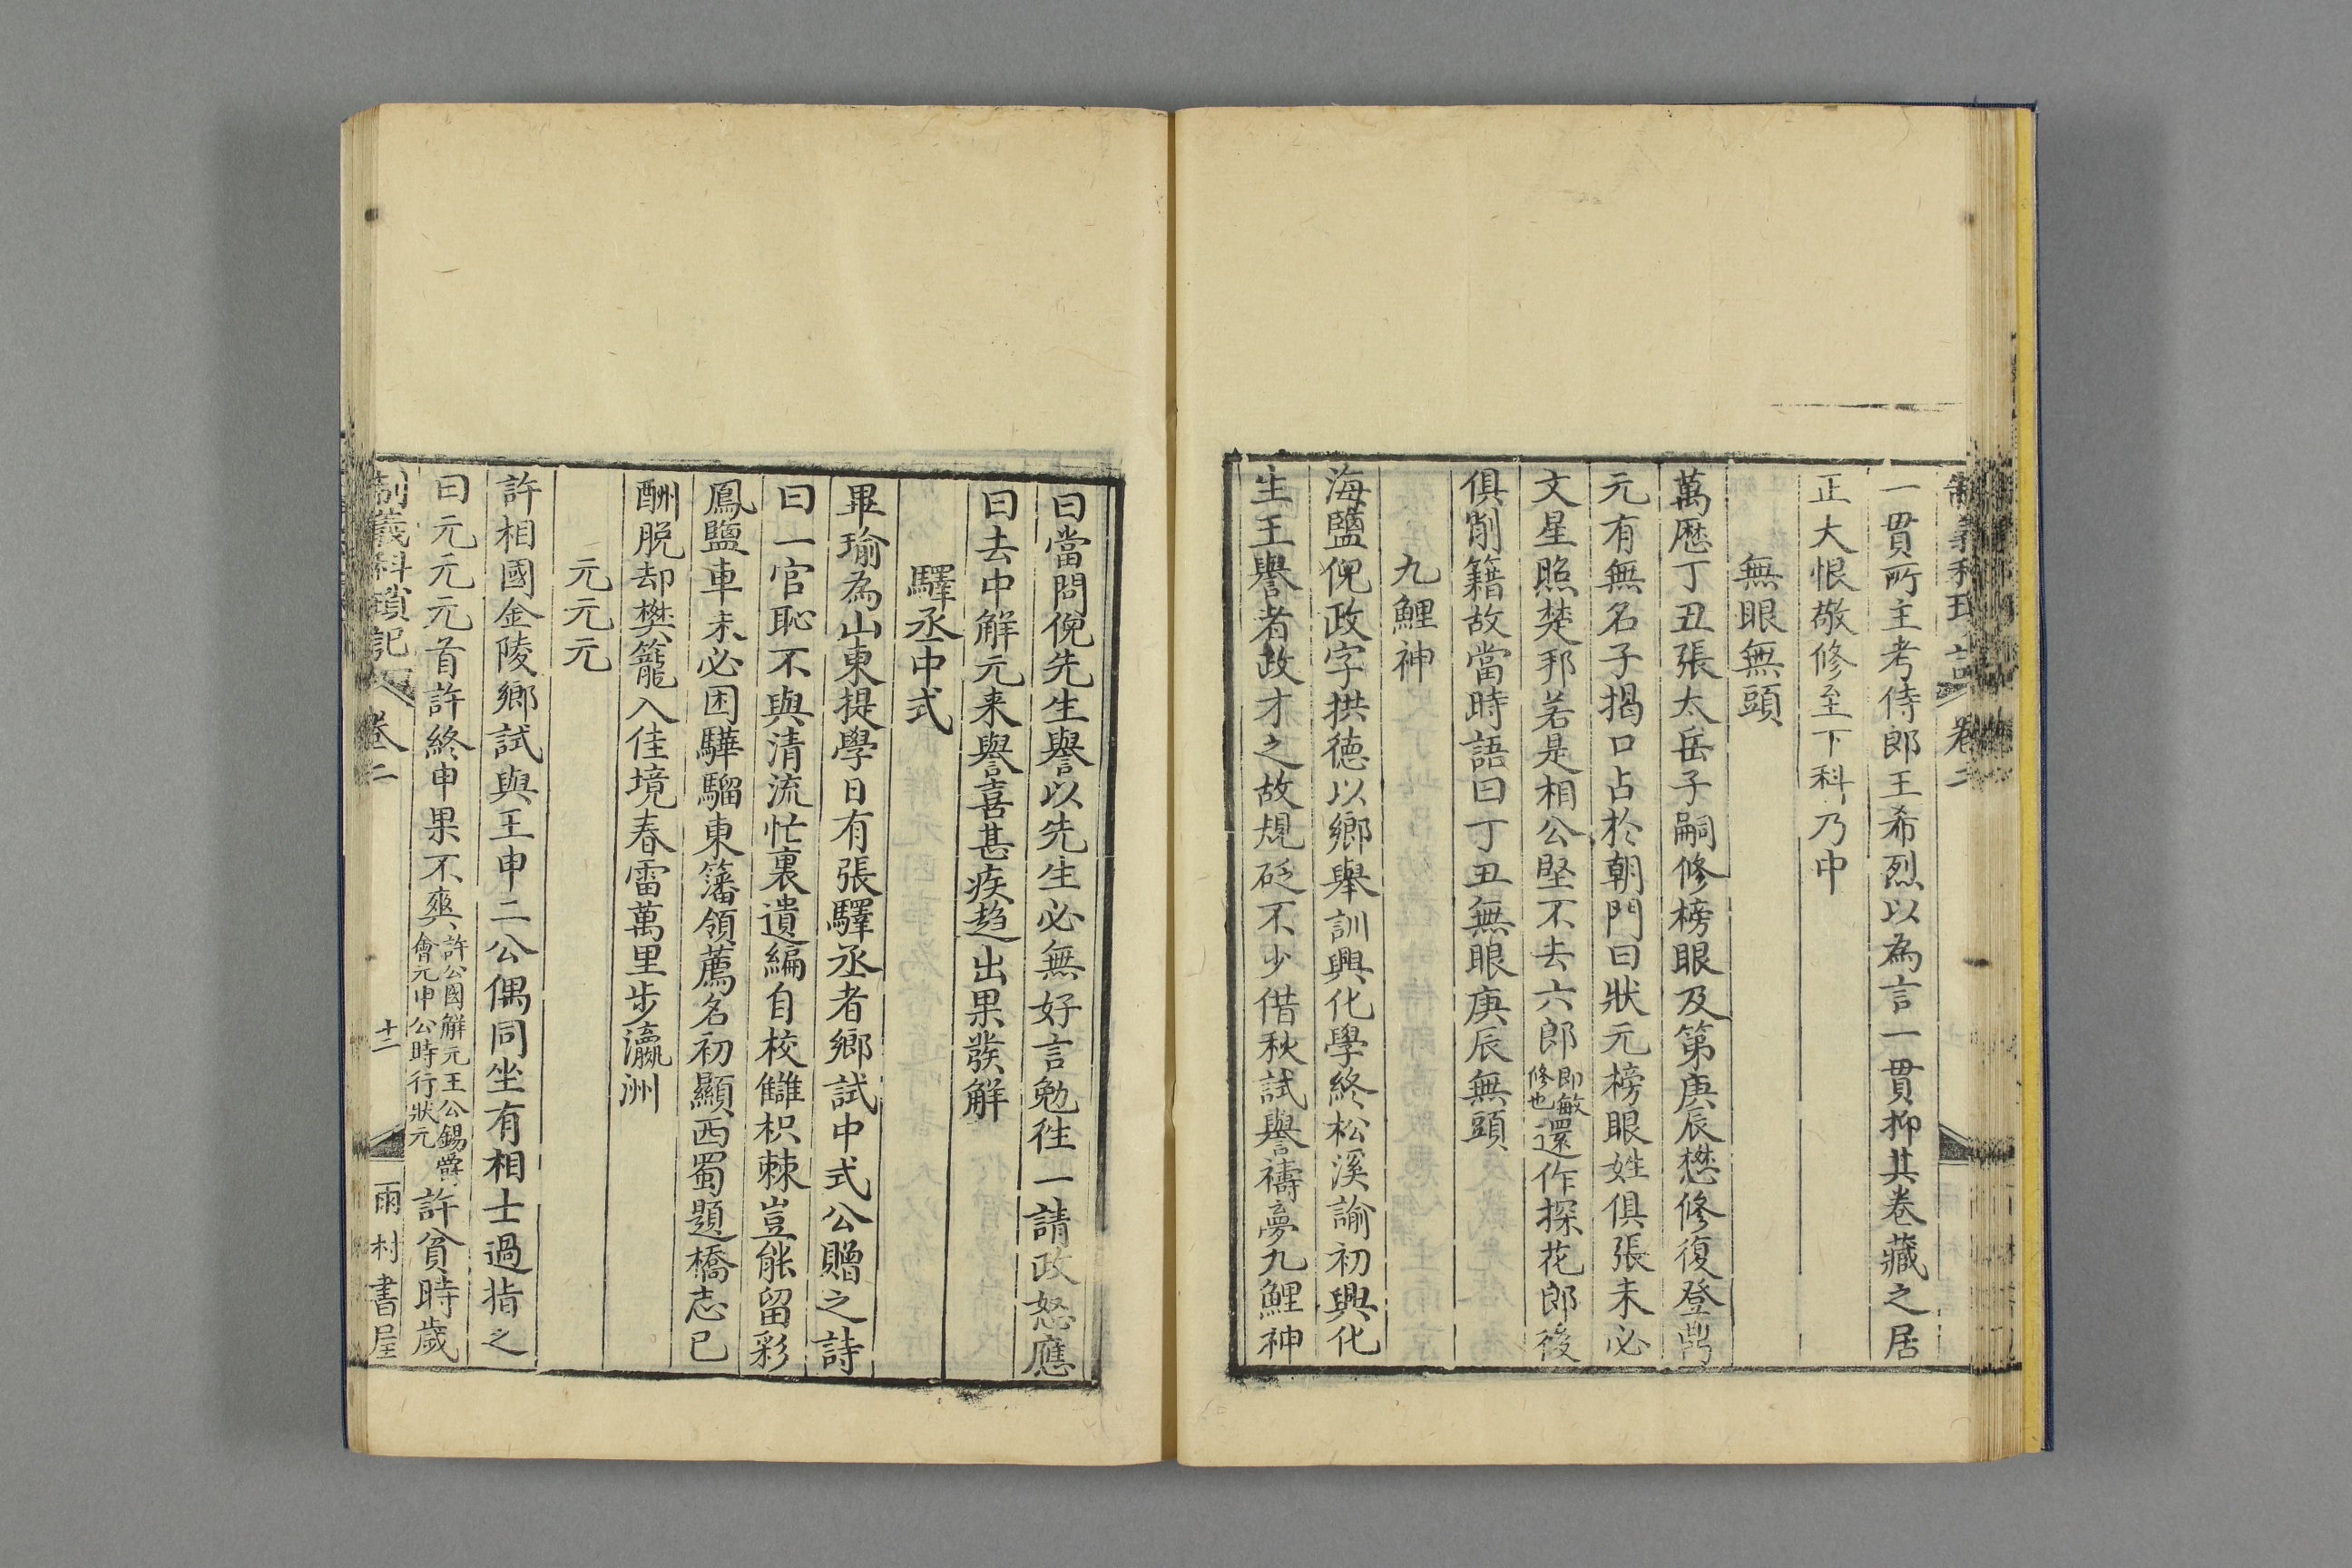 卷二
一貫所主考侍郎王希烈以為言一貫抑其卷藏之居
正大恨敬修至下科乃中
無眼無頭
萬厯丁丑張太岳子嗣修榜眼及第庚辰懋修復登鼎
元有無名子揭口占於朝門曰狀元榜眼姓俱張未必
文星照楚邦若是相公堅不去六郎即敏修也還作探花郎後
俱削籍故當時語曰丁丑無眼庚辰無頭
九鯉神
海鹽倪政字拱德以鄉舉訓興化學終松溪諭初興化
生王譽者政才之故規砭不少借秋試譽禱夢九鯉神
曰當問倪先生譽以先生必無好言勉徃一請政怒應
曰去中解元来譽喜甚疾趋出果發解
驛丞中式
畢瑜為山東提學日有張驛丞者鄉試中式公贈之詩
曰一官恥不與清流忙裏遺編自校讎枳棘豈能留彩
鳳鹽車未必困驊騮東籓領薦名初顯西蜀題橋志已
酬脱却樊籠入佳境春雷萬里步瀛洲
元元元
許相國金陵鄉試與王申二公偶同坐有相士過指之
曰元元元首許終申果不爽許公國解元王公錫爵會元申公時行狀元許貧時歲
制義科瑣記 卷二 十二 雨村書屋